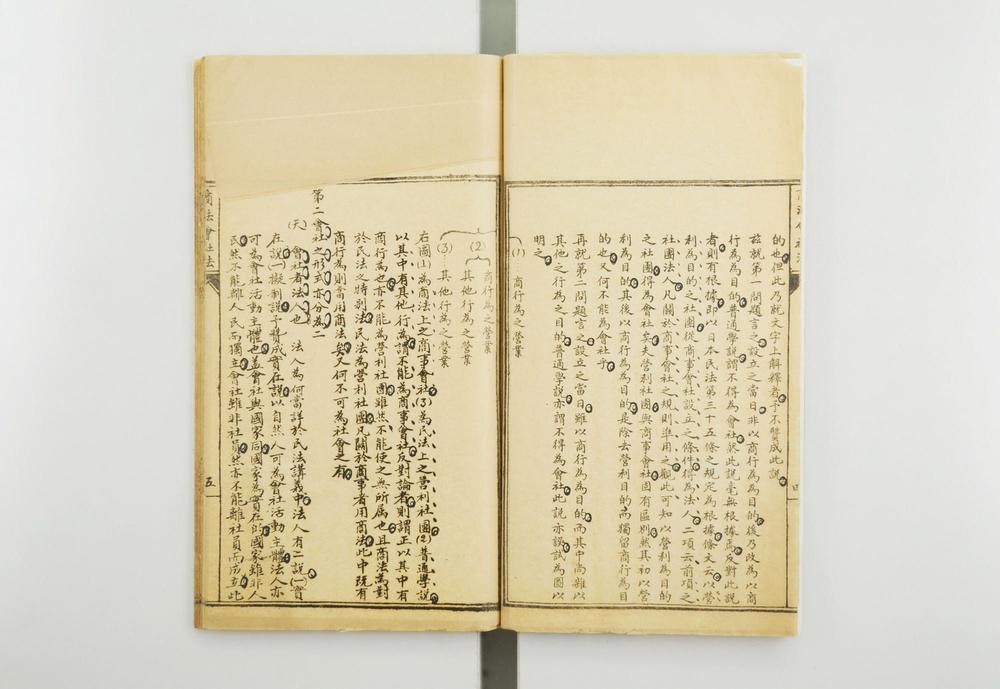 的也但此乃就文字上解釋者予不贊成此說
茲就第一問題言之設立之當日非以商行為為目的後乃改為以商
行為為目的普通學說謂不得為會社然此說毫無根據焉反對此說
者則有根據即以日本民法第三十五條之規定為根據條文云以營
利為目的之社團從商事會社設立之條件得為法人二項云前項之
社團法人凡關於商事會社之規則準用之觀此可知以營利為目的
之社團得為會社矣夫營利社團與商事會社固有區別然其初以營
利為目的其後以商行為為目的是除去營利目的而獨留商行為目
的也又何不能為會社乎
再就第二問題言之設立之當日雖以商行為為目的而其中尚雜以
其他之行為之目的普通學說亦謂不得為會社此說亦誤試為圖以
明之
(1) 商行為之營業
四
(2) 商行為之營業
其他行為之營業
(3) 其他行為之營業
右圖(1)為商法上之商事會社(3)為民法上之營利社團(2)普通學說
以其中有其他行為謂不能為商事會社反對論者則謂正以其中有
商行為也亦不能為營利社團雖然不能使之無所屬也且商法為對
於民法之特別法民法為營利社團凡關於商事者用商法此中既有
商行為則當用商法矣又何不可為社會之有
第二會社之形式亦分為二
(天) 會社者法人也 法人為何當詳於民法講義中法人有二說(一)實
在說(二)擬制說予贊成實在說以自然人可為會社活動主體法人亦
可為會社活動主體也蓋會社與國家同國家為實在即國家雖非人
民然不能離人民而獨立會社雖非社員然亦不能離社員而成立此
商法會社法
五